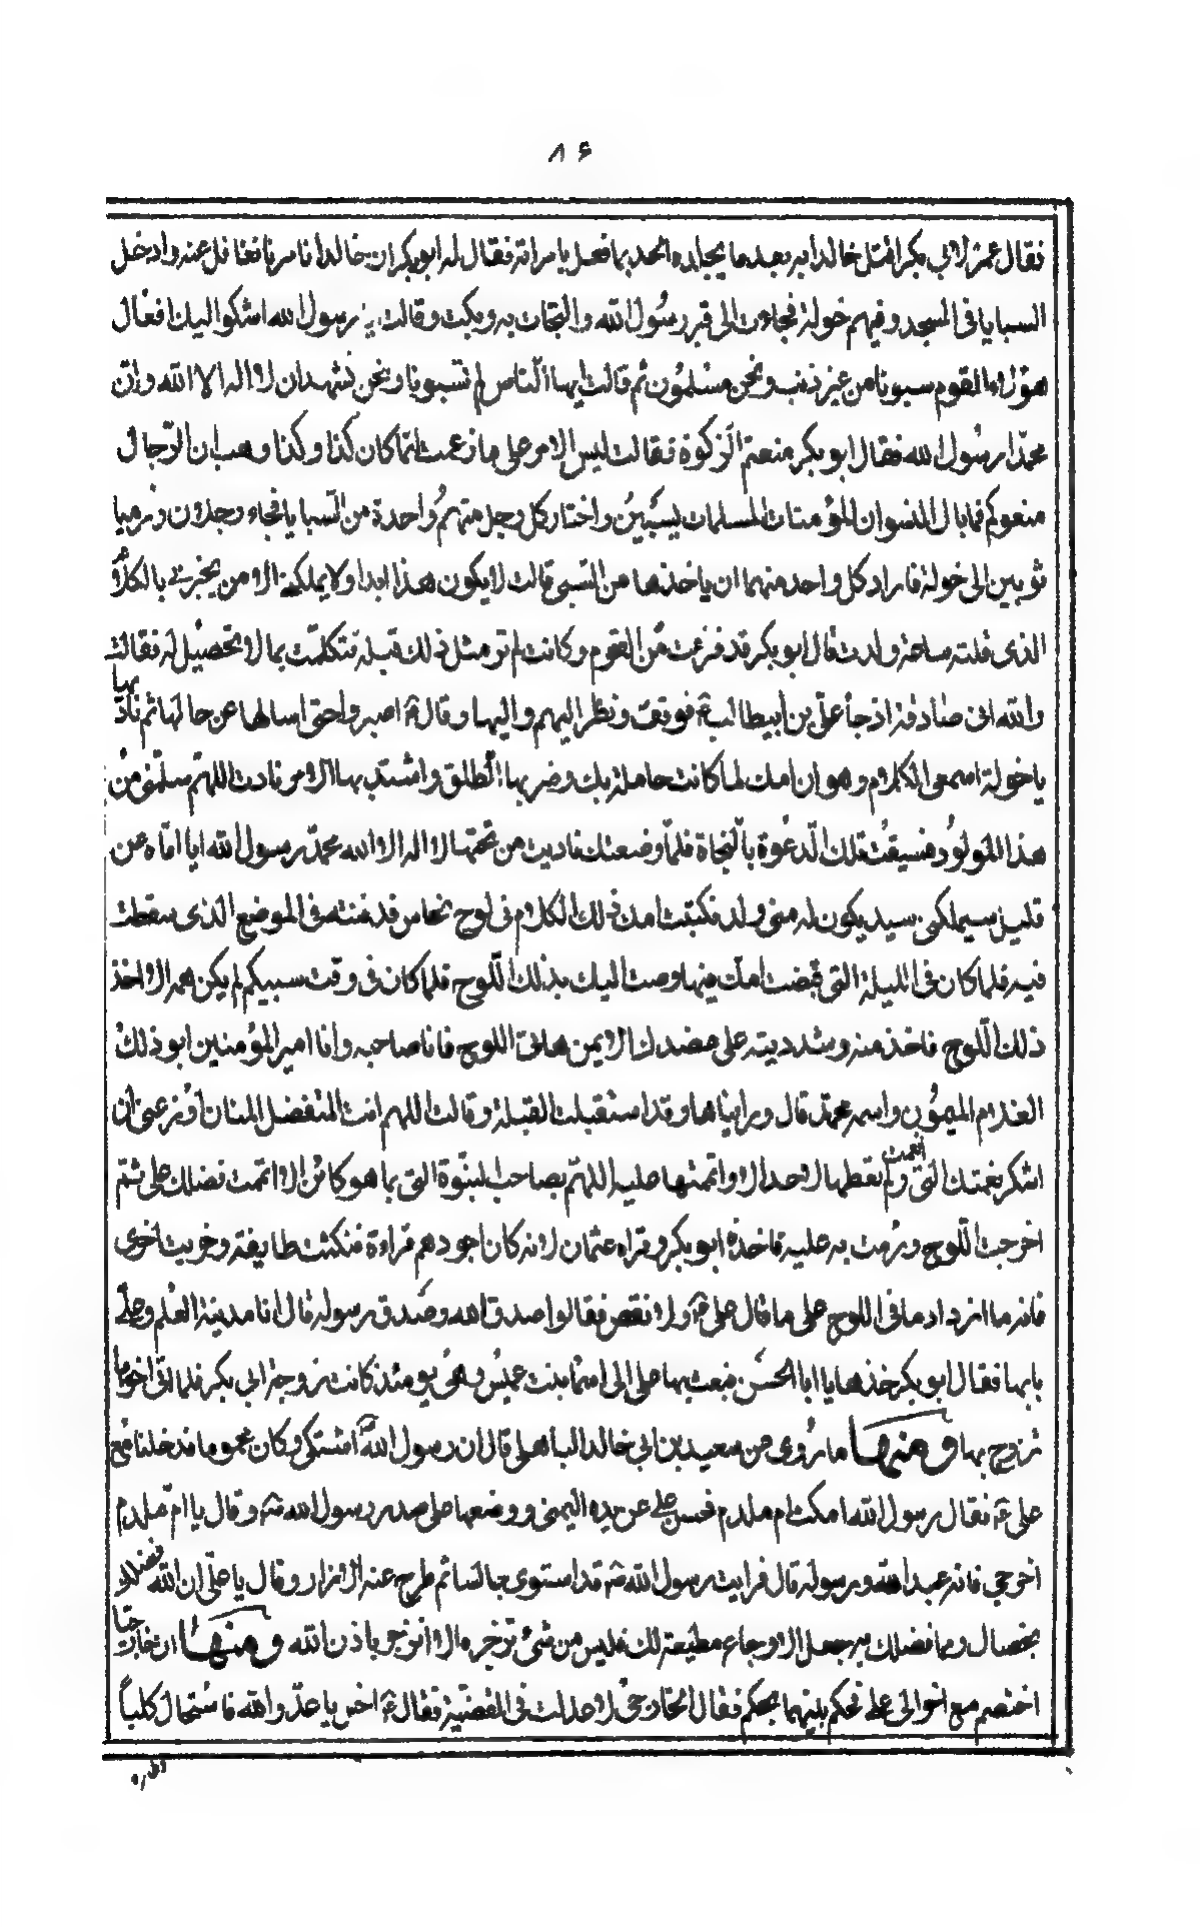 ۸۶
فقال عمر لابي بكر اقتل خالدا به بعد ما يجلده الحد بما فعل بامراته فقال له ابو بكر ان خالدا ناصرنا فتغافل عنه وادخل
السبايا في المسجد وفيهم خولة فجاءت الى قبر رسول الله والتجات به وبكت وقالت يا رسول الله اشكوا اليك افعال
هؤلاء القوم سبونا من غير ذنب ونحن مسلمون ثم قالت ايها الناس لم تسبونا ونحن نشهد ان لا اله الا الله وان
محمدا رسول الله فقال ابو بكر منعتم الزكوة فقالت ليس الامر على ما زعمت انما كان كذا وكذا وهب ان الرجال
منعوكم فما بال النسوان المؤمنات المسلمات يسبين واختار كل رجل منهم واحدة من السبايا فجاء رجلان ورميا
ثوبين الى خولة فاراد كل واحد منهما ان ياخذها من السبي قالت لا يكون هذا ابدا ولا يملكني الا من يخبرني بالكلام
الذي قلته ساعة ولدت قال ابو بكر قد فزعت من القوم وكانت لم تر مثل ذلك قبله فتكلمت بما لا تحصيل له فقالت
والله اني صادقة اذ جاء علي بن ابيطالب ع فوقف ونظر اليهم واليها وقال ع اصبروا حتى اسالها عن حالها ثم ناديها
يا خولة اسمعي الكلام وهو ان امك لما كانت حاملة بك وضربها الطلق واشتد بها الامر نادت اللهم سلمني من
هذا المولود فسبقت تلك الدعوة بالنجاة فلما وضعتك ناديت من تحتها لا اله الا الله محمد رسول الله ايا اماه عن
قليل سيملكني سيد يكون له مني ولد فكتبت امك ذلك الكلام في لوح نحاس فدفنته في الموضع الذي سقطت
فيه فلما كان في الليلة التي قبضت امك فيها وصت اليك بذلك اللوح فلما كان في وقت سبيكم لم يكن همك الا اخذ
ذلك اللوح فاخذتيه وشددتيه على عضدك الايمن هاتي اللوح فانا صاحبه وانا امير المؤمنين ابو ذلك
الغلام الميمون واسمه محمد قال وراينا ها وقد استقبلت القبلة وقالت اللهم انت المتفضل المنان اوزعني ان
اشكر نعمتك التي انعمت ولم تعطها لاحد الا واتممتها عليه اللهم بصاحب النبوة التي بما هو كائن الا اتممت فضلك علي ثم
اخرجت اللوح ورمت به عليه فاخذه ابو بكر وقراه عثمان لانه كان اجودهم قراءة فنكثت طايفة وخربت اخرى
فانه ما ازداد ما في اللوح على ما قال علي ع ولا نقص فقالوا صدق الله وصدق رسوله قال انا مدينة العلم وعلي
بابها فقال ابو بكر خذها يا ابا الحسن فبعث بها علي الى اسما بنت عميس وهي يومئذ كانت زوجة ابي بكر فلما اتى اخوها
تزوج بها ومنها ما روي عن سعيد بن ابي خالد الباهلي قال ان رسول الله اشتكى وكان محموما فدخلنا مع
علي ع فقال رسول الله امكث ام ملدم فحسر علي عن يده اليمنى ووضعها على صدر رسول الله ص وقال يا ام ملدم
اخرجي فانه عبد الله ورسوله قال فرايت رسول الله ص قد استوى جالسا ثم طرح عنه الازار وقال يا علي ان الله فضلك
بخصال ومما فضلك به جعل الاوجاع مطيعة لك فليس من شئ تزجره الا انزجر باذن الله ومنها ان خارجيا
اختصم مع اخر الى علي فحكم بينهما بحكم فقال الخارجي لا عدلت في القضية فقال ع اخس يا عدو الله فاستحال كلبا